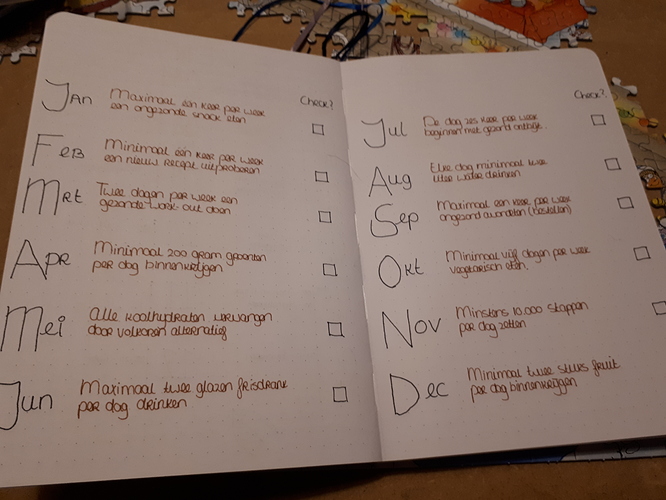 Check?
Jan Maximaal een keer per week
een ongezonde snack eten
Feb Minimaal een keer per week
een nieuw recept uitproberen
Mrt Twee dagen per week een
gezonde work-out doen
Apr Minimaal 200 gram groenten
per dag binnenkrijgen
Mei Alle koolhydraten vervangen
door volkoren alternatief
Jun Maximaal twee glazen frisdrank
per dag drinken
Check?
Jul De dag zes keer per week
beginnen met gezond ontbijt.
Aug Elke dag minimaal twee
liter water drinken
Sep Maximaal een keer per week
ongezond avondeten (bestellen)
Okt Minimaal vijf dagen per week
vegetarisch eten.
Nov Minstens 10.000 stappen
per dag zetten
Dec Minimaal twee stuks fruit
per dag binnenkrijgen